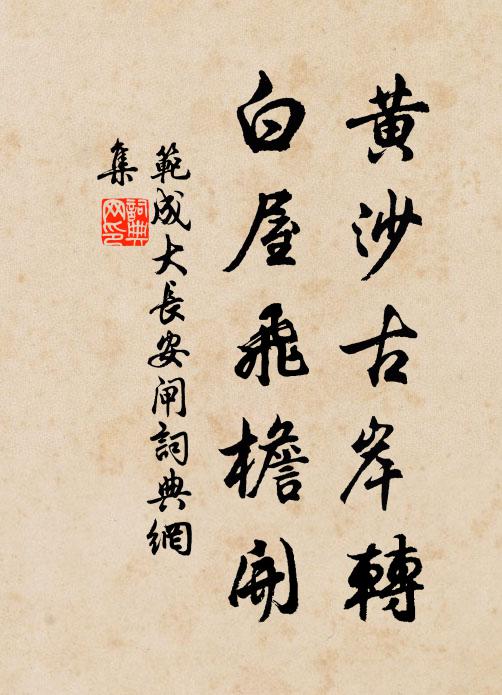 黄沙古岸轉
白屋飛檐開
範成大長安閘詞典網
集
詞典
网印